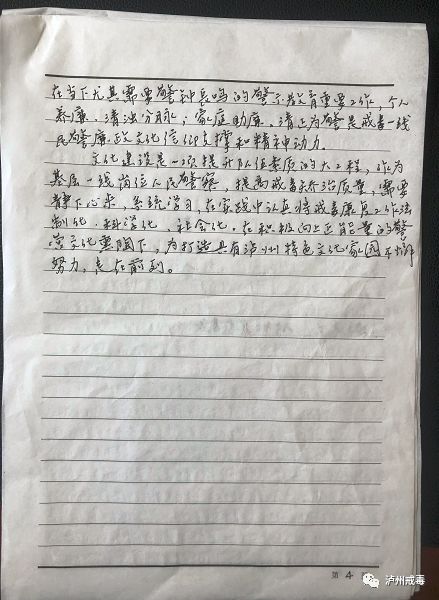 在当下尤其需要警钟长鸣的警示教育重要工作,个人
养廉,清浊分明;家庭助廉,清正为警是戒毒一线
民警廉政文化信仰支撑和精神动力。
文化建设是一项提升队伍素质的大工程,作为
基层一线岗位人民警察,提高戒毒矫治质量,需要
静下心来,系统学习,在实践中认真将戒毒康复工作法
制化、科学化、社会化。在积极向上正能量的警
营文化熏陶下,为打造具有泸州特色文化家园不懈
努力,走在前列。
第 4
泸州戒毒